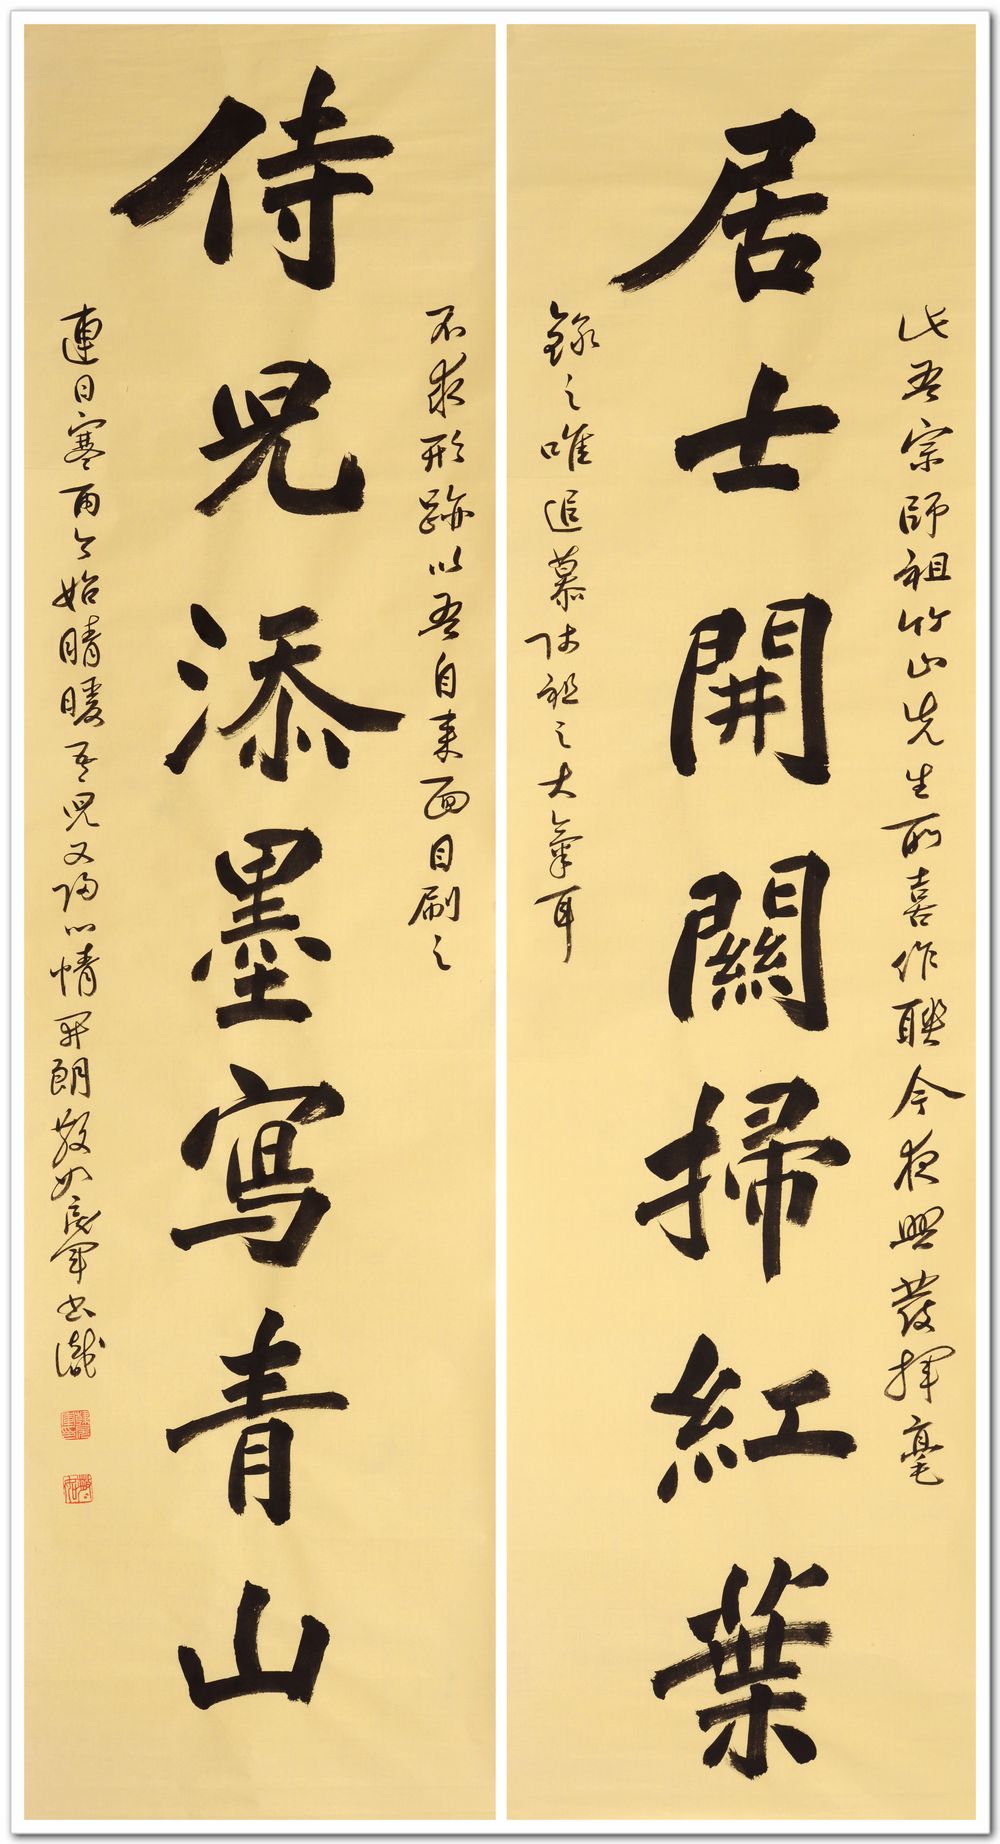 居士開關掃紅葉
侍兒添墨寫青山
此吾宗師祖竹山先生所喜作聯今夜興發揮毫
錄之唯追慕師祖之大氣耳
不求形跡以吾自來面目刷之
連日寒雨今始晴暖吾兒又歸心情開朗散如 軍書識